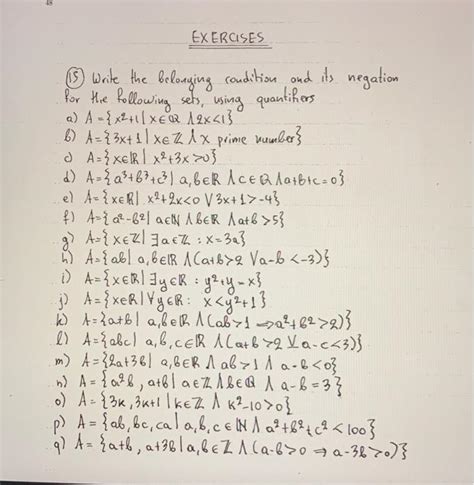 48
EXERCISES
(15) Write the belonging condition and its negation
for the following sets, using quantifiers
a) A={x²+1|x∈Q ∧2x<1}
b) A={3x+1|x∈Z ∧x prime number}
c) A={x∈R| x²+3x>0}
d) A={a³+b³+c³| a,b∈R ∧c∈Q∧a+b+c=0}
e) A={x∈R| x²+2x<0 ∨3x+1>-4}
f) A={a²-b²| a∈N ∧b∈R ∧a+b>5}
g) A={x∈Z|∃a∈Z : x=3a}
h) A={ab| a,b∈R ∧(a+b>2 ∨a-b<-3)}
i) A={x∈R|∃y∈R: y²+y=x}
j) A={x∈R|∀y∈R: x<y²+1}
k) A={a+b| a,b∈R ∧(ab>1 ⇒a²+b²>2)}
l) A={abc| a,b,c∈R ∧(a+b>2 ⊻ a-c<3)}
m) A={2a+3b| a,b∈R ∧ ab>1 ∧ a-b<0}
n) A = {a²b , a+b| a∈Z ∧b∈Q ∧ a-b=3}
o) A={3k,3k+1|k∈Z ∧ k²-10>0}
p) A= {ab,bc,ca| a,b,c∈N ∧a²+b²+c²<100}
q) A= {a+b, a+3b|a,b∈Z ∧(a-b>0 ⇒ a-3b>0)}